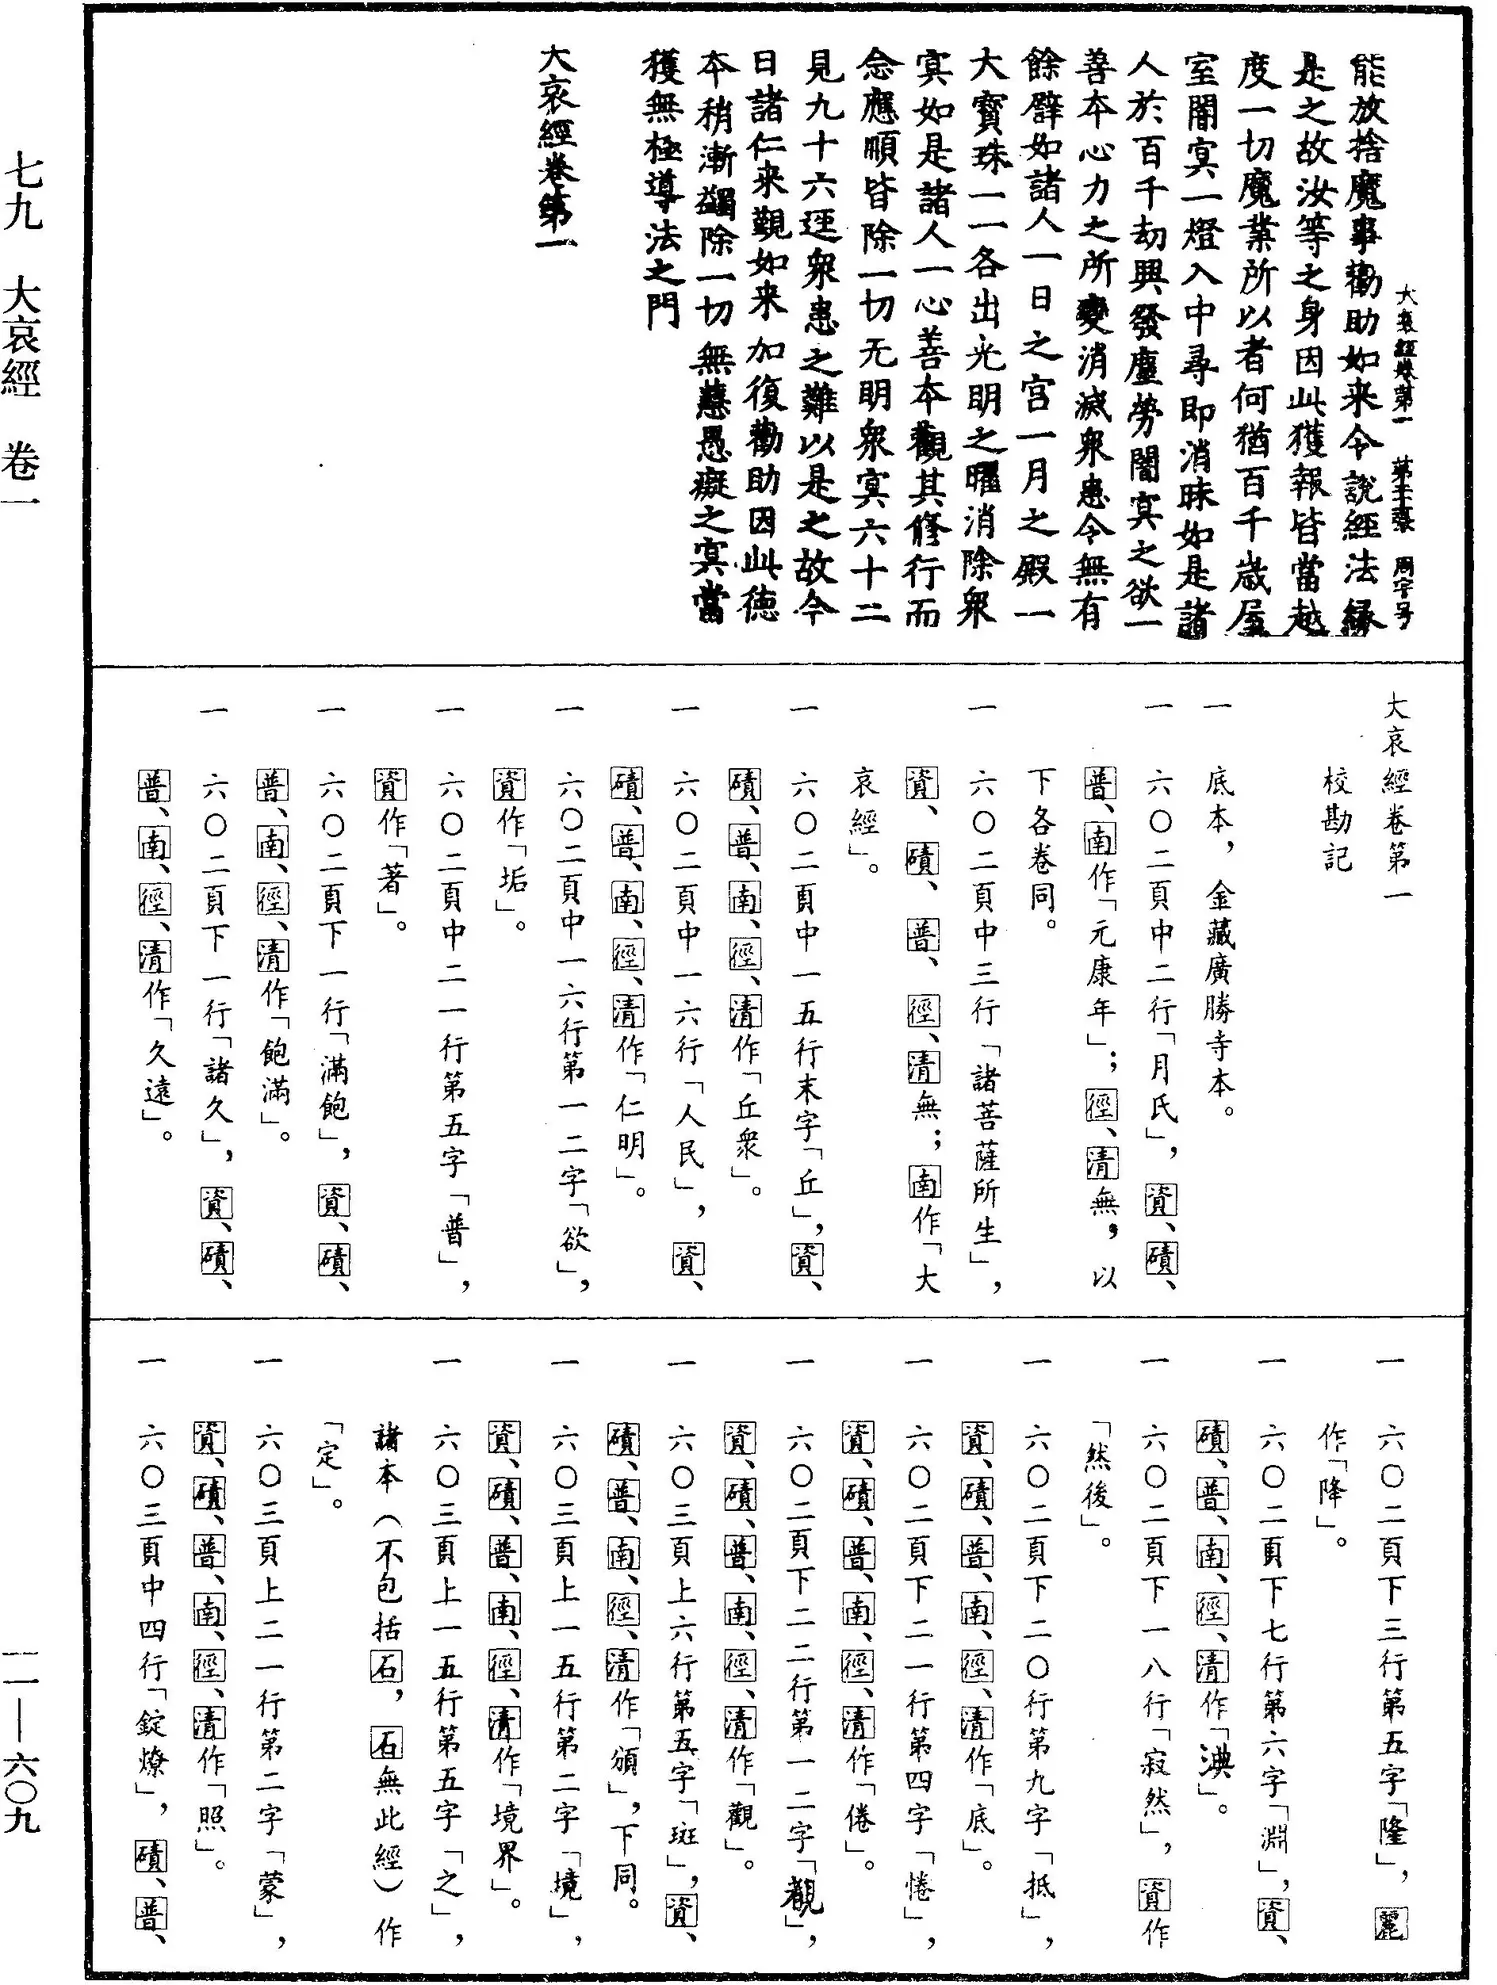 大哀經卷第一 第三十張 周字号
能放捨魔事勸助如来今說經法緣
是之故汝等之身因此獲報皆當越
度一切魔業所以者何猶百千歲屋
室闇冥一燈入中尋即消昧如是諸
人於百千劫興發塵勞闇冥之欲一
善本心力之所變消滅衆患令無有
餘辟如諸人一日之宫一月之殿一
大寶珠一一各出光明之曜消除衆
冥如是諸人一心善本觀其修行而
念應順皆除一切无明衆冥六十二
見九十六逕衆患之難以是之故今
日諸仁来觀如来加復勸助因此德
本稍漸蠲除一切無慧愚癡之冥當
獲無極導法之門
大哀經卷第一
大哀經卷第一
校勘記
一 底本，金藏廣勝寺本。
一 六〇二頁中二行「月氏」，資、磧、
普、南作「元康年」；徑、清無，以
下各卷同。
一 六〇二頁中三行「諸菩薩所生」，
資、磧、普、徑、清無；南作「大
哀經」。
一 六〇二頁中一五行末字「丘」，資、
磧、普、南、徑、清作「丘衆」。
一 六〇二頁中一六行「人民」，資、
磧、普、南、徑、清作「仁明」。
一 六〇二頁中一六行第一二字「欲」，
資作「垢」。
一 六〇二頁中二一行第五字「普」，
資作「著」。
一 六〇二頁下一行「滿飽」，資、磧、
普、南、徑、清作「飽滿」。
一 六〇二頁下一行「諸久」，資、磧、
普、南、徑、清作「久遠」。
一 六〇二頁下三行第五字「隆」，麗
作「降」。
一 六〇二頁下七行第六字「淵」，資、
磧、普、南、徑、清作「淟」。
一 六〇二頁下一八行「寂然」，資作
「然後」。
一 六〇二頁下二〇行第九字「抵」，
資、磧、普、南、徑、清作「底」。
一 六〇二頁下二一行第四字「惓」，
資、磧、普、南、徑、清作「倦」。
一 六〇二頁下二二行第一二字「覩」，
資、磧、普、南、徑、清作「觀」。
一 六〇三頁上六行第五字「斑」，資、
磧、普、南、徑、清作「頒」，下同。
一 六〇三頁上一五行第二字「境」，
資、磧、普、南、徑、清作「境界」。
一 六〇三頁上一五行第五字「之」，
諸本（不包括石，石無此經）作
「定」。
一 六〇三頁上二一行第二字「蒙」，
資、磧、普、南、徑、清作「照」。
一 六〇三頁中四行「錠燎」，磧、普、
七九 大哀經 卷一
一一——六〇九